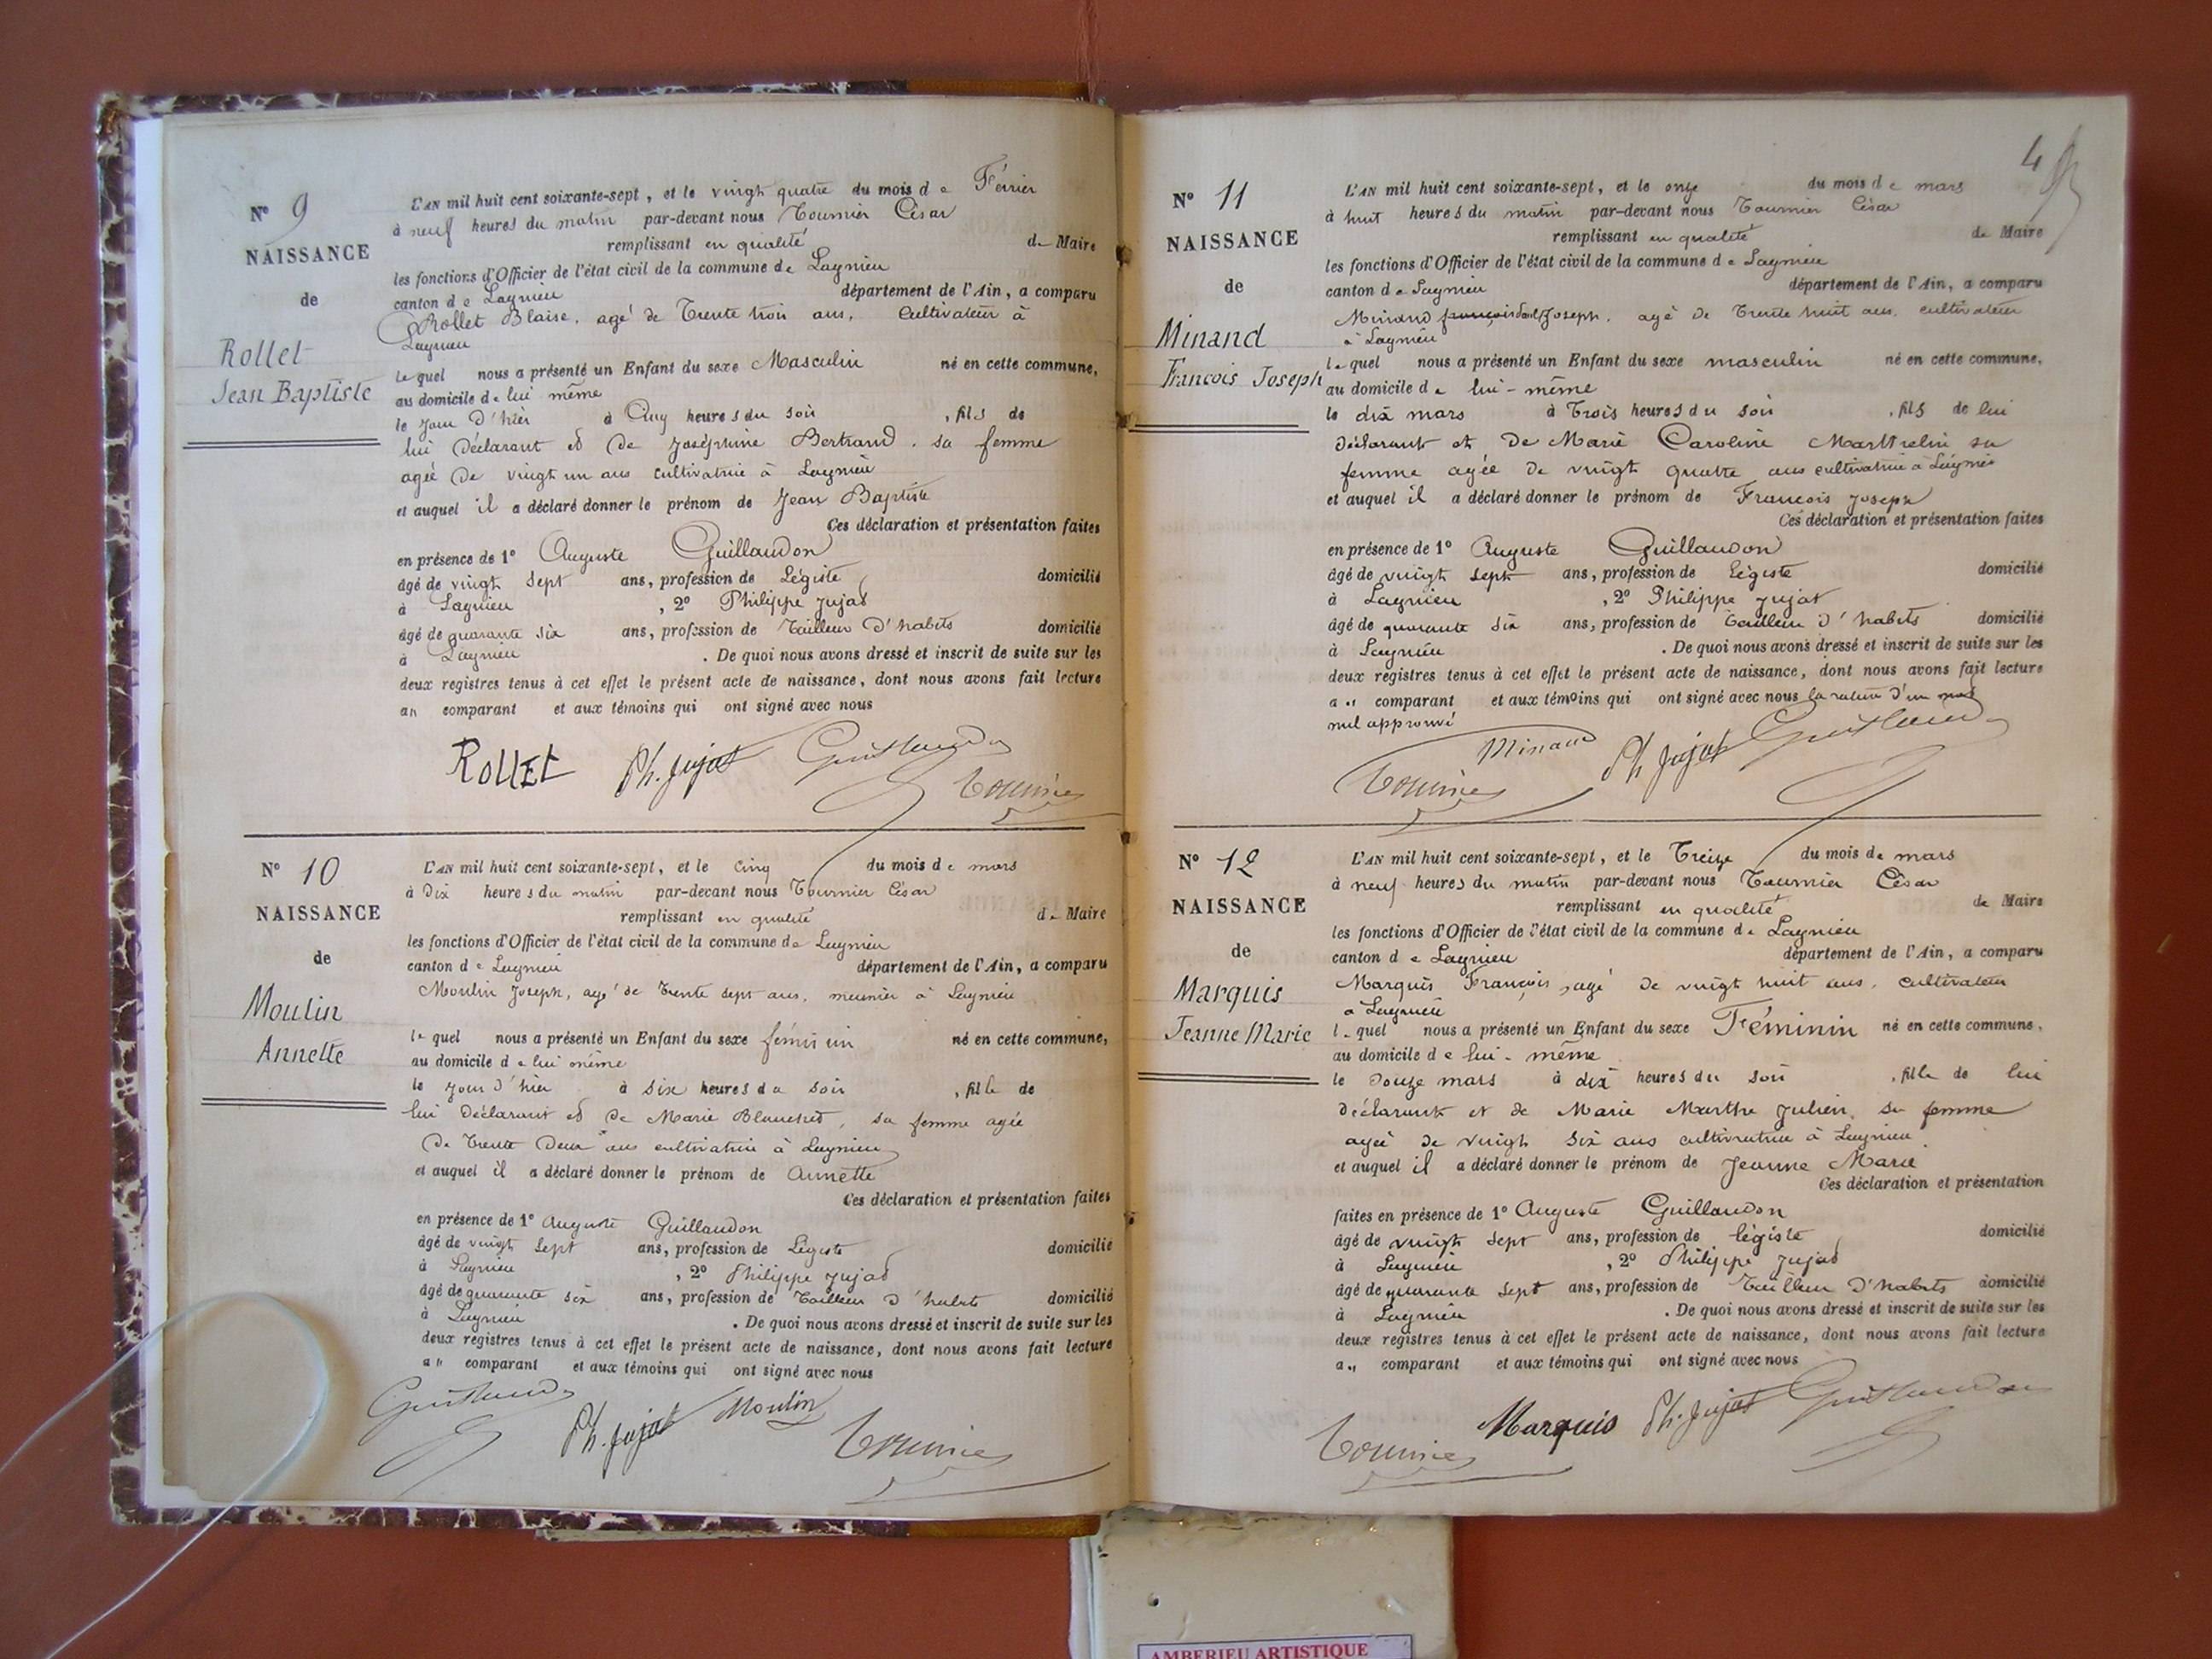 N° 9
NAISSANCE
de
Rollet
Jean Baptiste
L'AN mil huit cent soixante-sept, et le vingt quatre du mois de Février
à neuf heures du matin par-devant nous Tournier César
remplissant en qualité de Maire
les fonctions d'Officier de l'état civil de la commune de Lagnieu
canton de Lagnieu département de l'Ain, a comparu
Rollet Blaise, agé de Trente trois ans, Cultivateur à
Lagnieu
lequel nous a présenté un Enfant du sexe Masculin né en cette commune,
au domicile de lui même
le jour d'hier à Cinq heures du soir, fils de
lui Déclarant et de Joséphine Bertrand, sa femme
agée de vingt un ans cultivatrice à Lagnieu
et auquel il a déclaré donner le prénom de Jean Baptiste
Ces déclaration et présentation faites
en présence de 1° Auguste Guillaudon
âgé de vingt sept ans, profession de Légiste domicilié
à Lagnieu, 2° Philippe Jujat
âgé de quarante six ans, profession de Tailleur d'habits domicilié
à Lagnieu. De quoi nous avons dressé et inscrit de suite sur les
deux registres tenus à cet effet le présent acte de naissance, dont nous avons fait lecture
au comparant et aux témoins qui ont signé avec nous
ROLLEt Ph. Jujat Guillaudon
Tournier
N° 10
NAISSANCE
de
Moulin
Annette
L'AN mil huit cent soixante-sept, et le cinq du mois de mars
à Dix heures du matin par-devant nous Tournier César
remplissant en qualité de Maire
les fonctions d'Officier de l'état civil de la commune de Lagnieu
canton de Lagnieu département de l'Ain, a comparu
Moulin Joseph, agé de Trente sept ans, meunier à Lagnieu
lequel nous a présenté un Enfant du sexe féminin né en cette commune,
au domicile de lui même
le jour d'hier à six heures du soir, fille de
lui Déclarant et de Marie Blanchet, sa femme agée
de Trente Deux ans cultivatrice à Lagnieu
et auquel il a déclaré donner le prénom de Annette
Ces déclaration et présentation faites
en présence de 1° Auguste Guillaudon
âgé de vingt sept ans, profession de Légiste domicilié
à Lagnieu, 2° Philippe Jujat
âgé de quarante six ans, profession de Tailleur d'habits domicilié
à Lagnieu. De quoi nous avons dressé et inscrit de suite sur les
deux registres tenus à cet effet le présent acte de naissance, dont nous avons fait lecture
au comparant et aux témoins qui ont signé avec nous
Guillaudon Ph. Jujat Moulin Tournier
4
N° 11
NAISSANCE
de
Minand
Francois Joseph
L'AN mil huit cent soixante-sept, et le onze du mois de mars
à huit heures du matin par-devant nous Tournier César
remplissant en qualité de Maire
les fonctions d'Officier de l'état civil de la commune de Lagnieu
canton de Lagnieu département de l'Ain, a comparu
Minand françois Joseph, agé de Trente huit ans, cultivateur
à Lagnieu
lequel nous a présenté un Enfant du sexe masculin né en cette commune,
au domicile de lui-même
le dix mars à Trois heures du soir, fils de lui
déclarant et de Marie Caroline sa
femme agée de vingt quatre ans cultivatrice à Lagnieu
et auquel il a déclaré donner le prénom de Francois Joseph
Ces déclaration et présentation faites
en présence de 1° Auguste Guillaudon
âgé de vingt sept ans, profession de Légiste domicilié
à Lagnieu, 2° Philippe Jujat
âgé de quarante six ans, profession de Tailleur d'habits domicilié
à Lagnieu. De quoi nous avons dressé et inscrit de suite sur les
deux registres tenus à cet effet le présent acte de naissance, dont nous avons fait lecture
au comparant et aux témoins qui ont signé avec nous la rature d'un mot
nul approuvé
Minand Ph Jujat Guillaudon
Tournier
N° 12
NAISSANCE
de
Marquis
Jeanne Marie
L'AN mil huit cent soixante-sept, et le Treize du mois de mars
à neuf heures du matin par-devant nous Tournier César
remplissant en qualité de Maire
les fonctions d'Officier de l'état civil de la commune de Lagnieu
canton de Lagnieu département de l'Ain, a comparu
Marquis François, agé de vingt huit ans, cultivateur
à Lagnieu
lequel nous a présenté un Enfant du sexe Féminin né en cette commune,
au domicile de lui-même
le Douze mars à dix heures du soir, fille de lui
déclarant et de Marie Marthe Julien, sa femme
agée de vingt six ans cultivatrice à Lagnieu
et auquel il a déclaré donner le prénom de Jeanne Marie
Ces déclaration et présentation
faites en présence de 1° Auguste Guillaudon
âgé de vingt sept ans, profession de légiste domicilié
à Lagnieu, 2° Philippe Jujat
âgé de quarante sept ans, profession de Tailleur d'habits domicilié
à Lagnieu. De quoi nous avons dressé et inscrit de suite sur les
deux registres tenus à cet effet le présent acte de naissance, dont nous avons fait lecture
au comparant et aux témoins qui ont signé avec nous
Tournier Marquis Ph. Jujat Guillaudon
AMBERIEU ARTISTIQUE